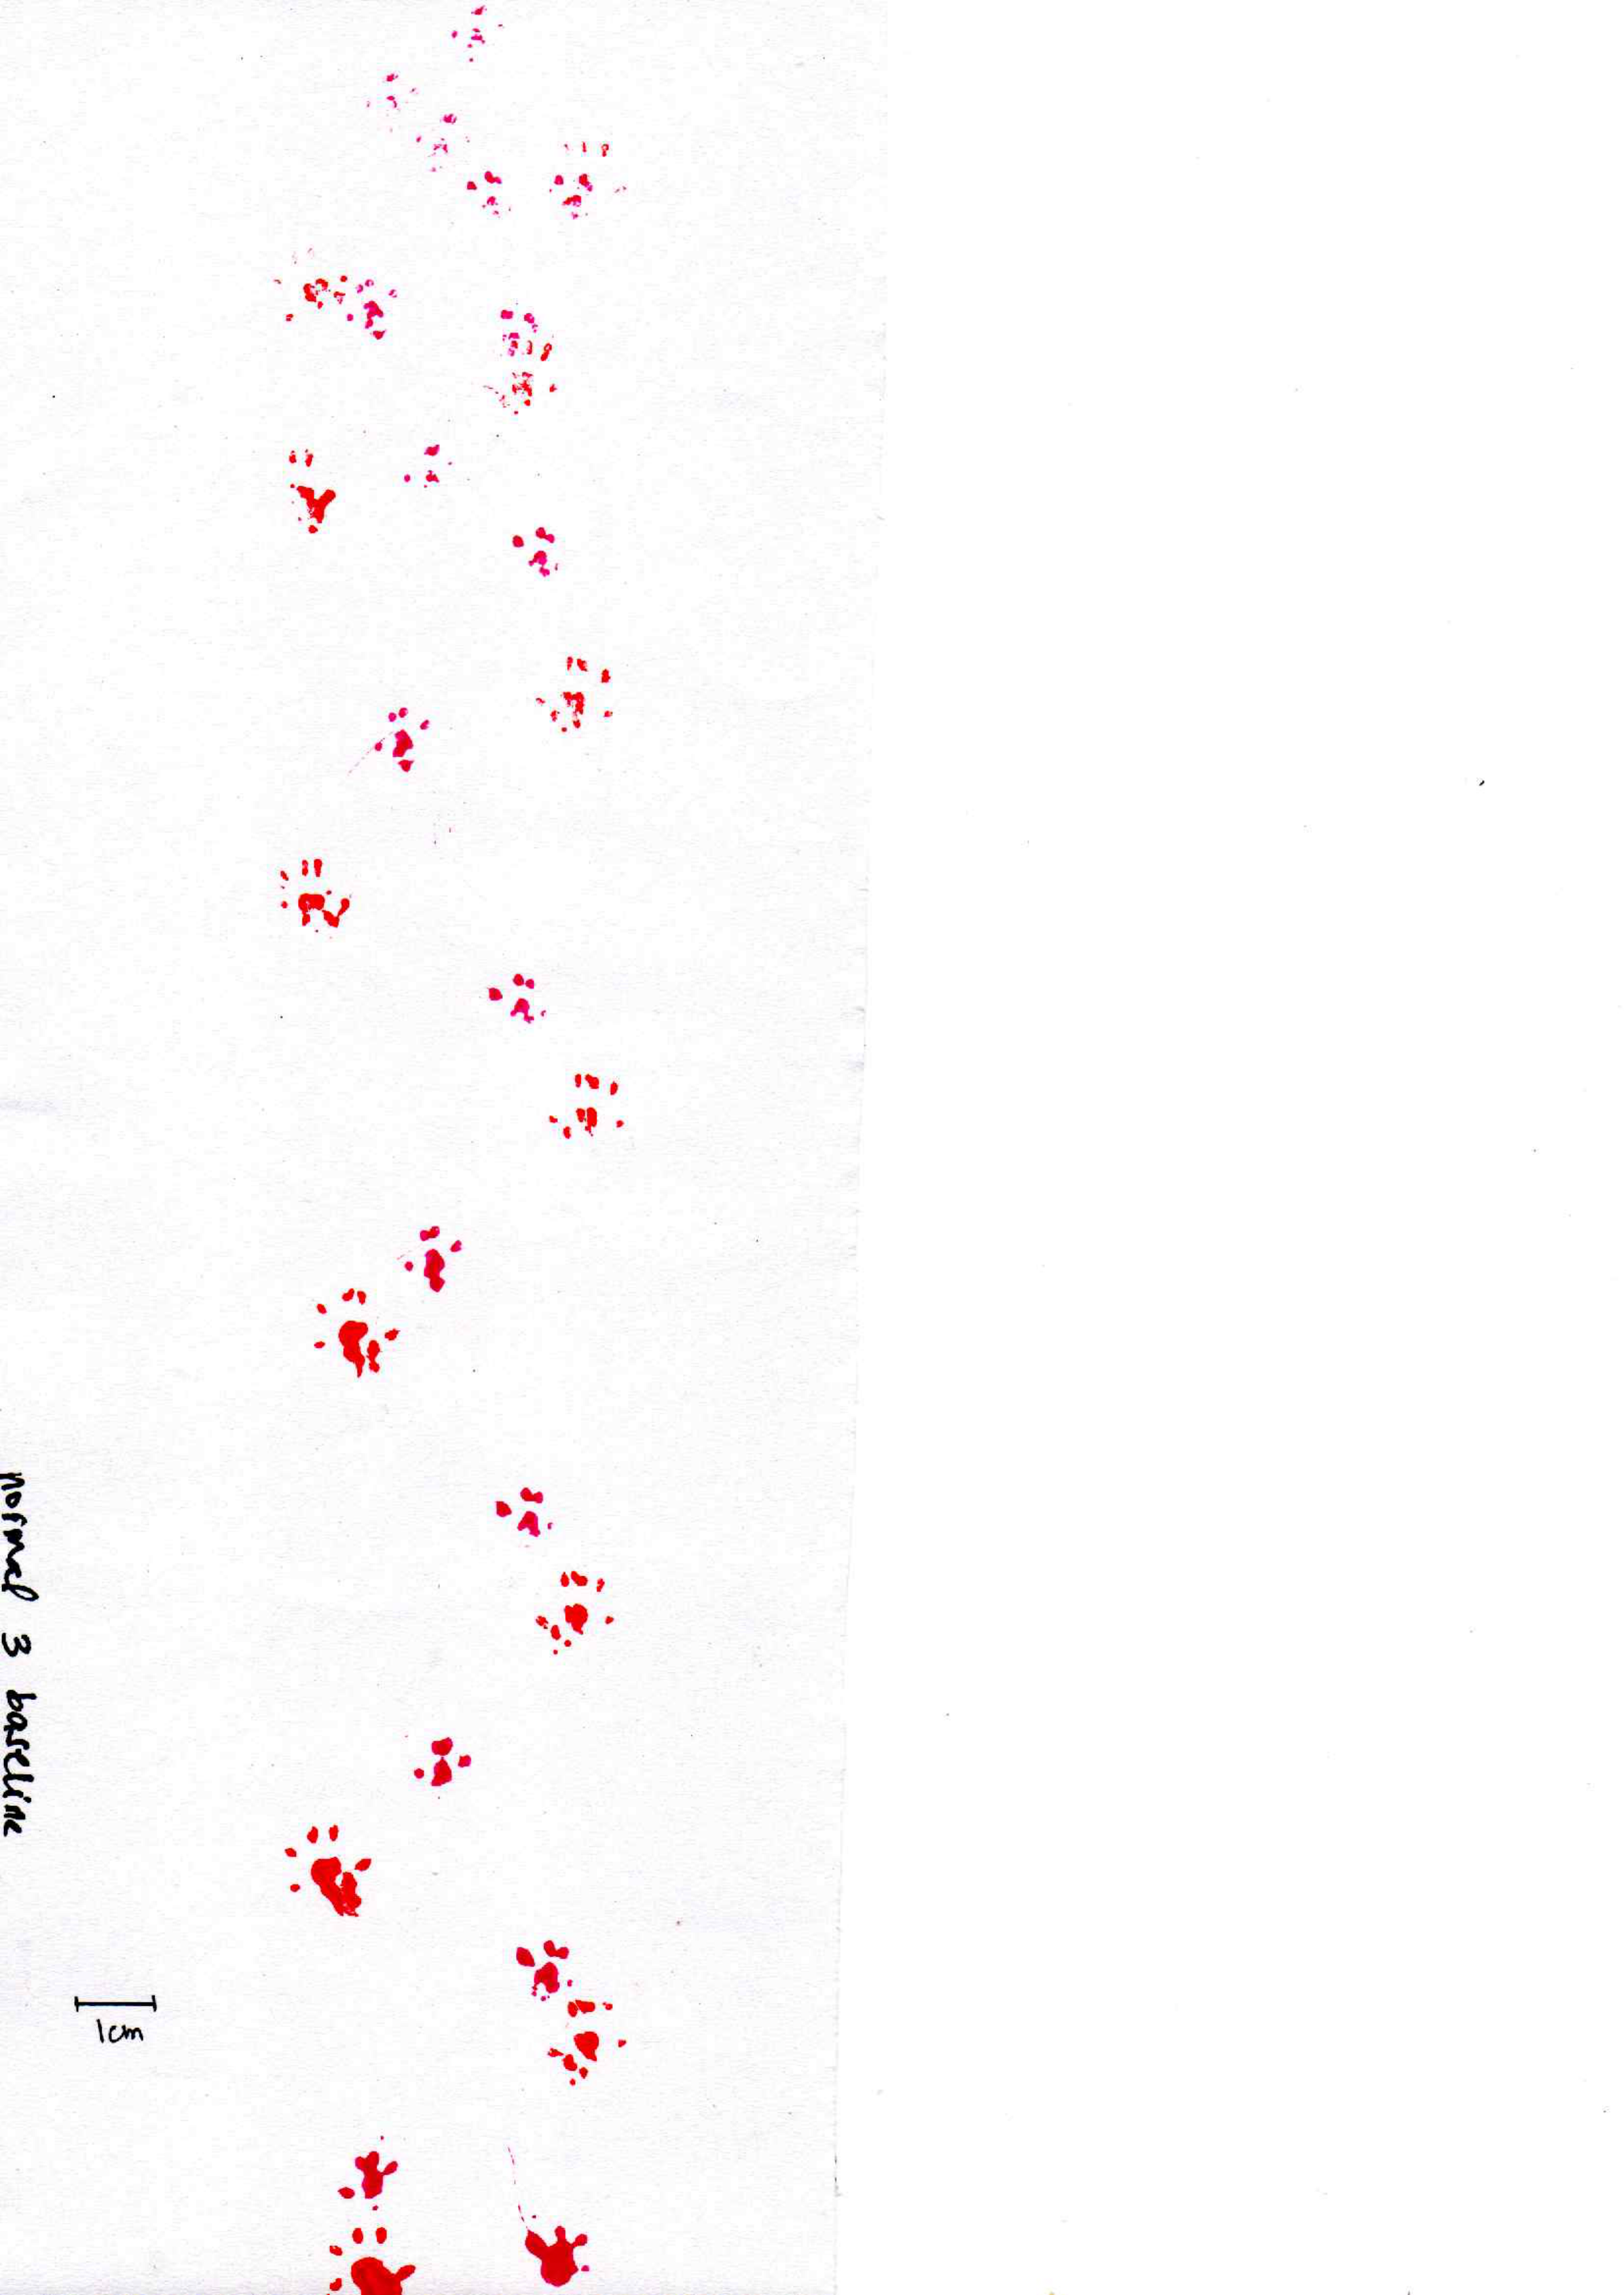 normal 3 baseline
1cm